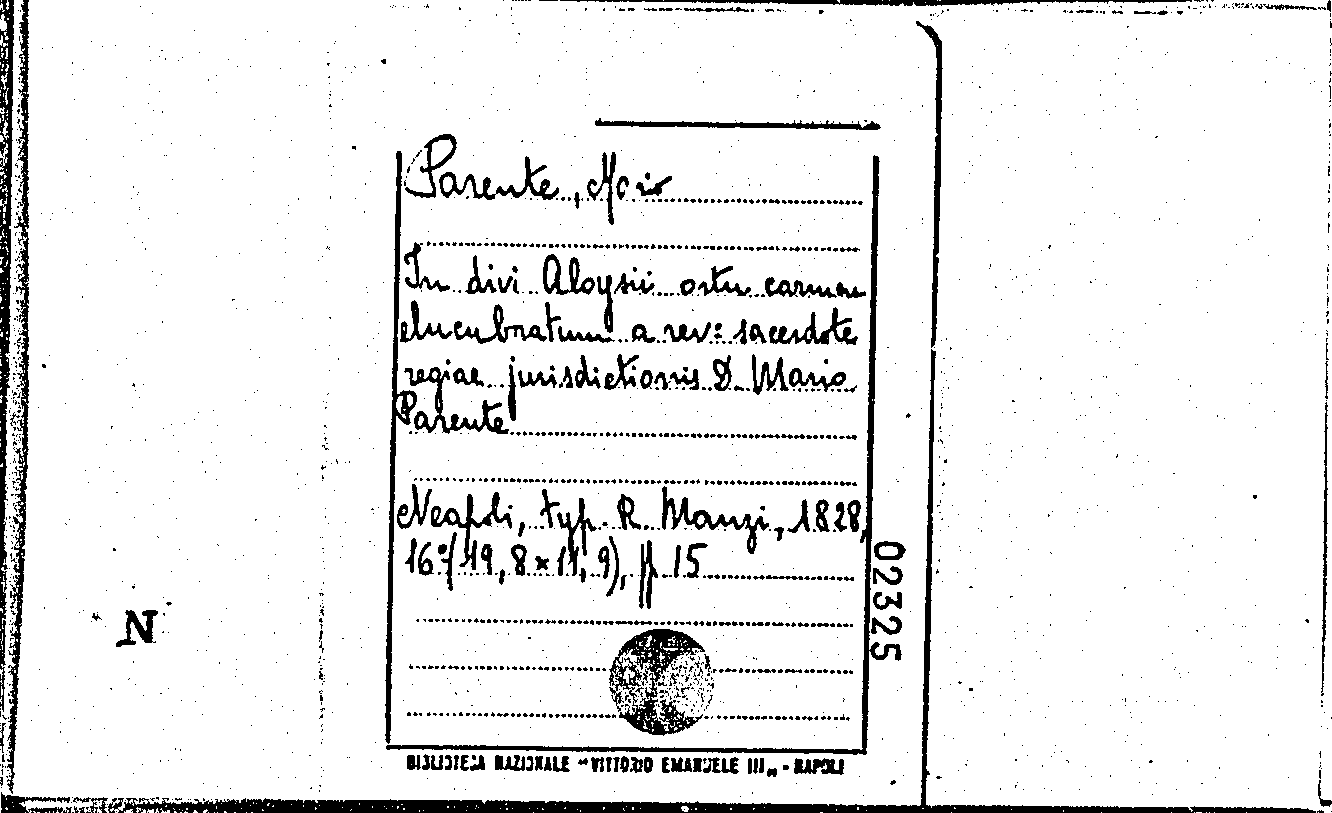 Parente, Mario
In divi Aloysii ortu carmen
elucubratum a rev: sacerdote
regiae jurisdictionis D. Mario
Parente
Neapoli, typ. R. Manzi, 1828,
16º (19,8 x 11,9), pp 15
02325
N
BIBLIOTECA NAZIONALE "VITTORIO EMANUELE III„ - NAPOLI